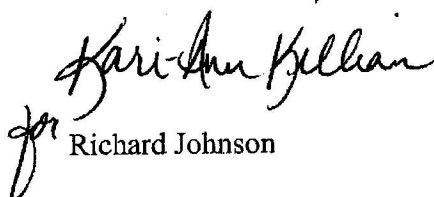 Kari-Ann Killian
for Richard Johnson